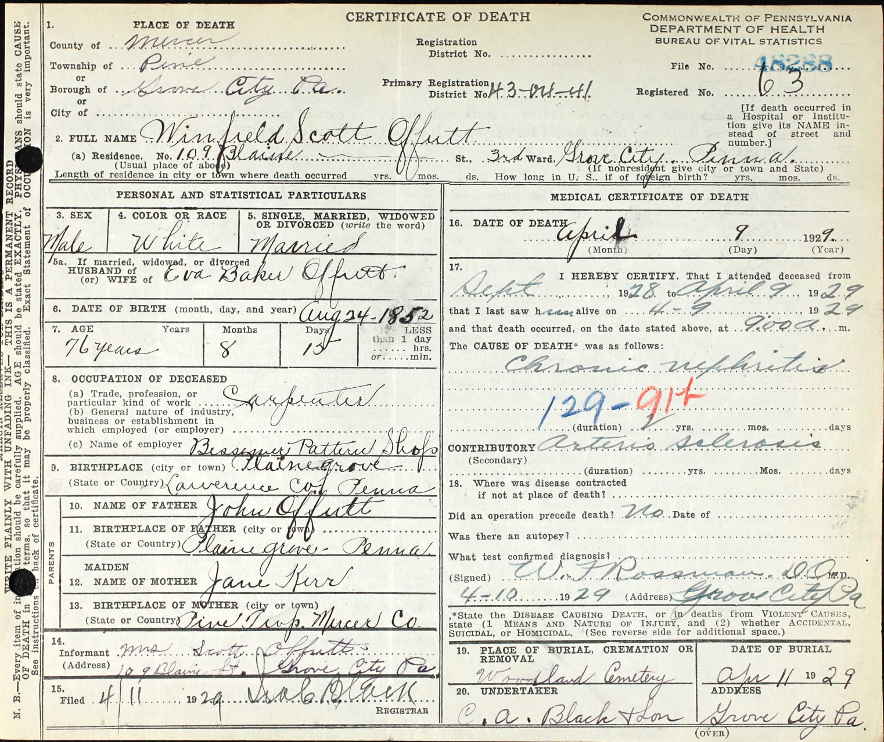 CERTIFICATE OF DEATH
COMMONWEALTH OF PENNSYLVANIA
DEPARTMENT OF HEALTH
BUREAU OF VITAL STATISTICS
1. PLACE OF DEATH
County of Mercer
Township of Pine
or
Borough of Grove City Pa.
or
City of
Registration
District No.
Primary Registration
District No. 43-04-41
File No. 48288
Registered No. 63
[If death occurred in a Hospital or Institution give its NAME instead of street and number.]
2. FULL NAME Winfield Scott Offutt
(a) Residence, No. 109 Blaine St., 3rd Ward, Grove City Penna.
(Usual place of abode) (If nonresident give city or town and State)
Length of residence in city or town where death occurred yrs. mos. ds. How long in U. S., if of foreign birth? yrs. mos. ds.
PERSONAL AND STATISTICAL PARTICULARS
3. SEX
Male
4. COLOR OR RACE
White
5. SINGLE, MARRIED, WIDOWED
OR DIVORCED (write the word)
Married
5a. If married, widowed, or divorced
HUSBAND of
(or) WIFE of Eva Baker Offutt
6. DATE OF BIRTH (month, day, and year) Aug 24-1852
7. AGE Years Months Days If LESS
than 1 day
hrs.
or min.
76 years 8 15
8. OCCUPATION OF DECEASED
(a) Trade, profession, or
particular kind of work Carpenter
(b) General nature of industry,
business or establishment in
which employed (or employer)
(c) Name of employer Bessemer Pattern Shops
9. BIRTHPLACE (city or town) Plainegrove
(State or Country) Lawerence Co, Penna
PARENTS
10. NAME OF FATHER John Offutt
11. BIRTHPLACE OF FATHER (city or town)
(State or Country) Plaine grove - Penna
MAIDEN
12. NAME OF MOTHER Jane Kerr
13. BIRTHPLACE OF MOTHER (city or town)
(State or Country) Pine Twp. Mercer Co
14.
Informant Mrs Scott Offutt
(Address) 109 Blaine St. Grove City Pa
15.
Filed 4/11 1929
REGISTRAR
MEDICAL CERTIFICATE OF DEATH
16. DATE OF DEATH April 9 1929.
(Month) (Day) (Year)
17. I HEREBY CERTIFY, That I attended deceased from
Sept 1928 to April 9 1929
that I last saw him alive on 4-9 1929
and that death occurred, on the date stated above, at 9:00 a. m.
The CAUSE OF DEATH* was as follows:
Chronic nephritis
129-91+
(duration) yrs. mos. days
CONTRIBUTORY Arterio sclerosis
(Secondary)
(duration) yrs. Mos. days
18. Where was disease contracted
if not at place of death?
Did an operation precede death? No Date of
Was there an autopsy?
What test confirmed diagnosis?
(Signed) W. F. Rossman D.O. M.D.
4-10 1929 (Address) Grove City Pa
*State the DISEASE CAUSING DEATH, or in deaths from VIOLENT CAUSES,
state (1 MEANS AND NATURE OF INJURY, and (2) whether ACCIDENTAL,
SUICIDAL, or HOMICIDAL. (See reverse side for additional space.)
19. PLACE OF BURIAL, CREMATION OR
REMOVAL
Woodland Cemetery
DATE OF BURIAL
Apr 11 1929
20. UNDERTAKER
C. A. Black & Son
ADDRESS
Grove City Pa.
(OVER)
WRITE PLAINLY WITH UNFADING INK—THIS IS A PERMANENT RECORD